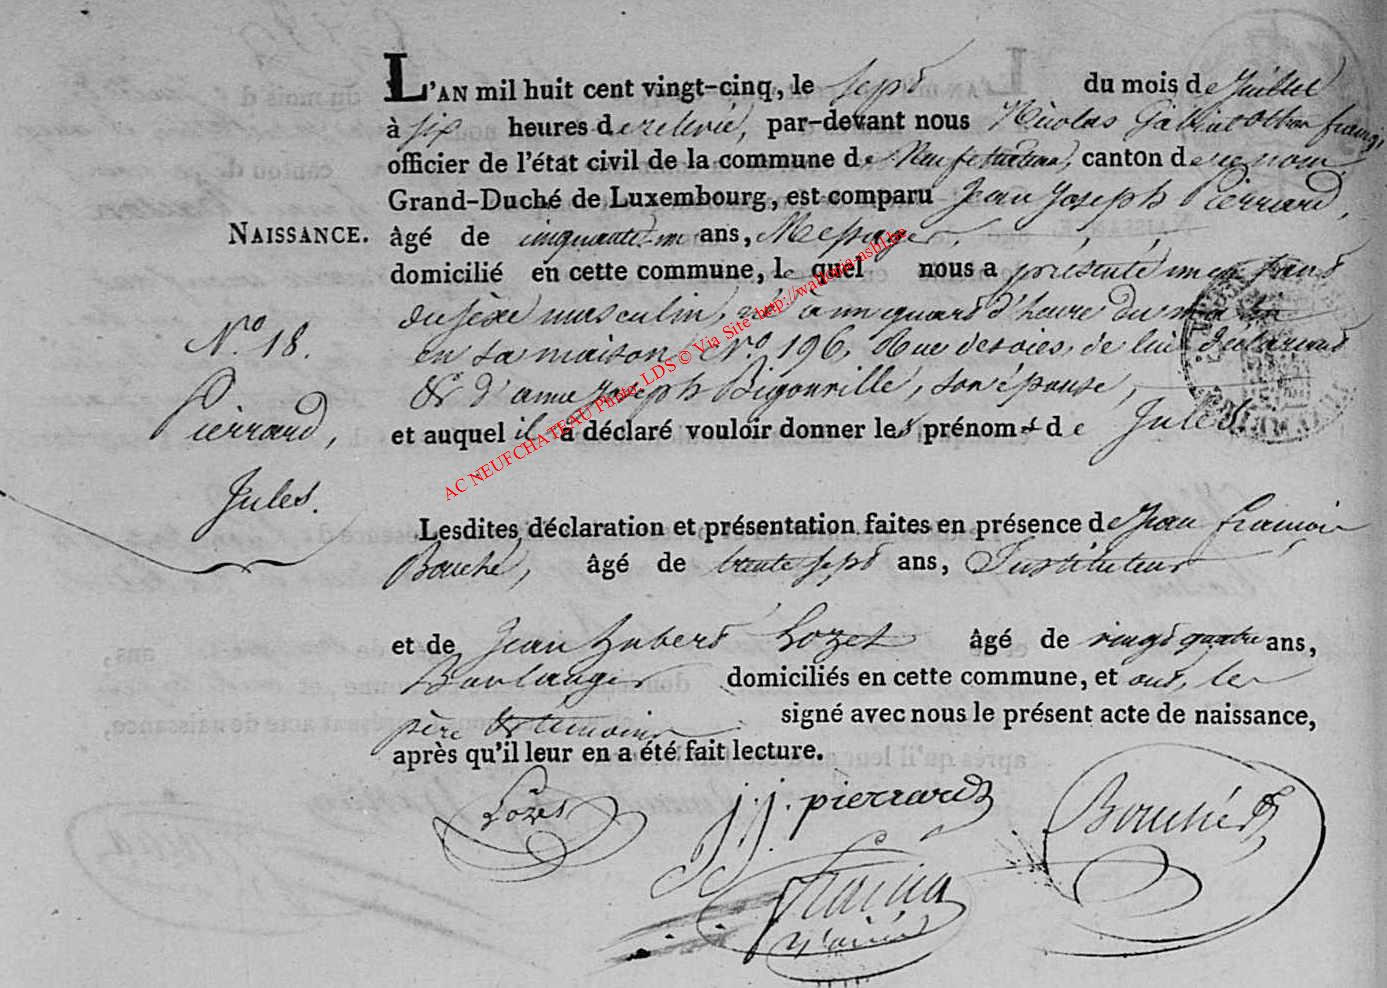 L'AN mil huit cent vingt-cinq, le sept du mois de Juillet
à six heures de relevée, par-devant nous Nicolas
officier de l'état civil de la commune de Neufchateau, canton de ce nom,
Grand-Duché de Luxembourg, est comparu Jean Joseph Pierrard,
NAISSANCE. âgé de cinquante-un ans, Messager,
domicilié en cette commune, le quel nous a présenté un enfant
du sèxe masculin, né à un quart d'heure du matin
en sa maison, N.º 196, Rue de lui déclarant
& d'anne Joseph Bigonville, son épouse,
et auquel il a déclaré vouloir donner les prénoms de Jules
N.º 18.
Pierrard,
Jules.
Lesdites déclaration et présentation faites en présence de Jean françois
Bouché, âgé de trente sept ans, Instituteur
et de Jean hubert Lozet âgé de vingt quatre ans,
Boulanger domiciliés en cette commune, et ont, les
père & temoins signé avec nous le présent acte de naissance,
après qu'il leur en a été fait lecture.
Lozet
J. J. pierrard
Bouché
l'ainé
AC NEUFCHATEAU Photo LDS © Via Site http://wallonia.nsh1.be